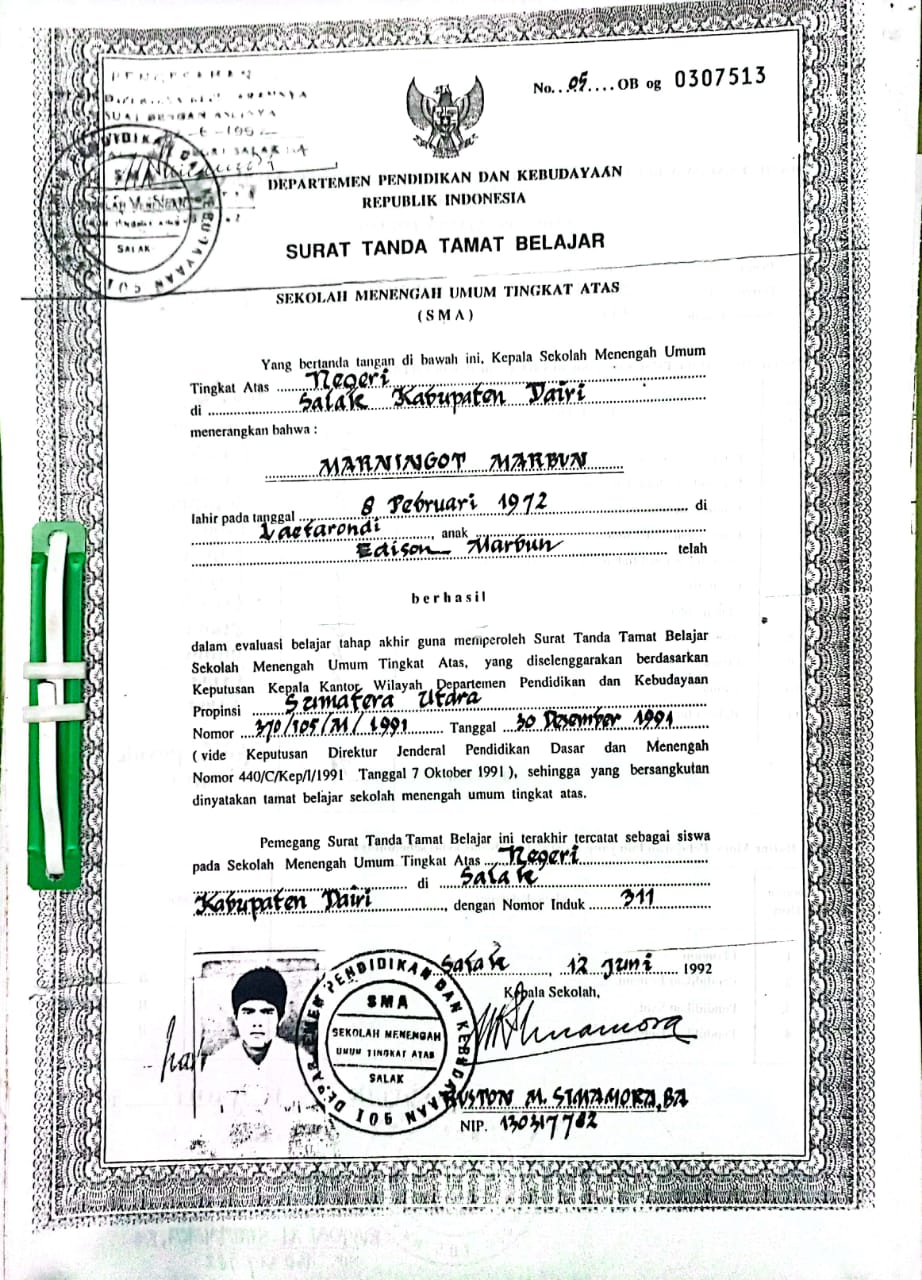 No. 05 OB og 0307513
DEPARTEMEN PENDIDIKAN DAN KEBUDAYAAN
REPUBLIK INDONESIA
SURAT TANDA TAMAT BELAJAR
SEKOLAH MENENGAH UMUM TINGKAT ATAS
(SMA)
SALAK
Yang bertanda tangan di bawah ini, Kepala Sekolah Menengah Umum
Tingkat Atas Negeri
di Salak Kabupaten Dairi
menerangkan bahwa :
MARNINGOT MARBUN
lahir pada tanggal 8 Pebruari 1972 di
Laetarondi, anak
Edison Marbun telah
berhasil
dalam evaluasi belajar tahap akhir guna memperoleh Surat Tanda Tamat Belajar
Sekolah Menengah Umum Tingkat Atas, yang diselenggarakan berdasarkan
Keputusan Kepala Kantor Wilayah Departemen Pendidikan dan Kebudayaan
Propinsi Sumatera Utara
Nomor 370/105/M/1991 Tanggal 30 Desember 1991
( vide Keputusan Direktur Jenderal Pendidikan Dasar dan Menengah
Nomor 440/C/Kep/I/1991 Tanggal 7 Oktober 1991 ), sehingga yang bersangkutan
dinyatakan tamat belajar sekolah menengah umum tingkat atas.
Pemegang Surat Tanda Tamat Belajar ini terakhir tercatat sebagai siswa
pada Sekolah Menengah Umum Tingkat Atas Negeri
di Salak
Kabupaten Dairi, dengan Nomor Induk 311
Salak, 12 Juni 1992
Kepala Sekolah,
DEPARTEMEN PENDIDIKAN DAN KEBUDAYAAN
SMA
SEKOLAH MENENGAH
UMUM TINGKAT ATAS
SALAK
RUSTON M. SIMAMORA, BA
NIP. 130317782